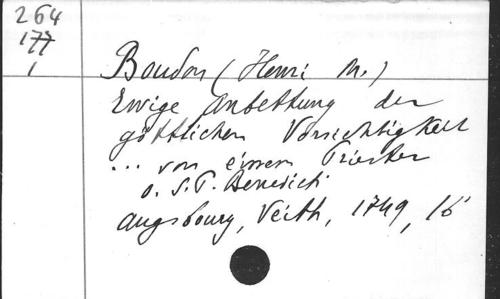 264
177
1
Boudon (Henri M.)
Ewige Anbettung der
göttlichen Vorsichtigkeit
... von einem Priester
O. S. P. Benedicti
Augsbourg, Veith, 1749, 16°